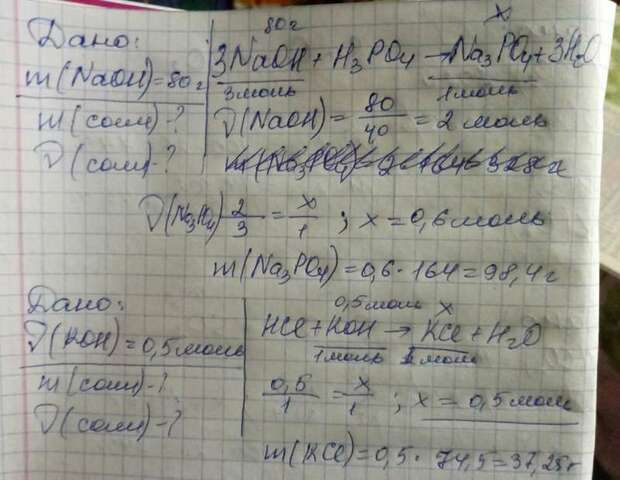 Дано:
m(NaOH)=80г
m(соли)-?
ν(соли)-?
80г x
3NaOH + H3PO4 → Na3PO4 + 3H2O
3моль 1моль
ν(NaOH) = 80/40 = 2 моль
2/3 = x/1 ; x = 0,6 моль
m(Na3PO4) = 0,6 · 164 = 98,4 г
Дано:
ν(KOH) = 0,5 моль
m(соли)-?
ν(соли)-?
0,5 моль x
HCl + KOH → KCl + H2O
1моль 1моль
0,5/1 = x/1 ; x = 0,5 моль
m(KCl) = 0,5 · 74,5 = 37,25г